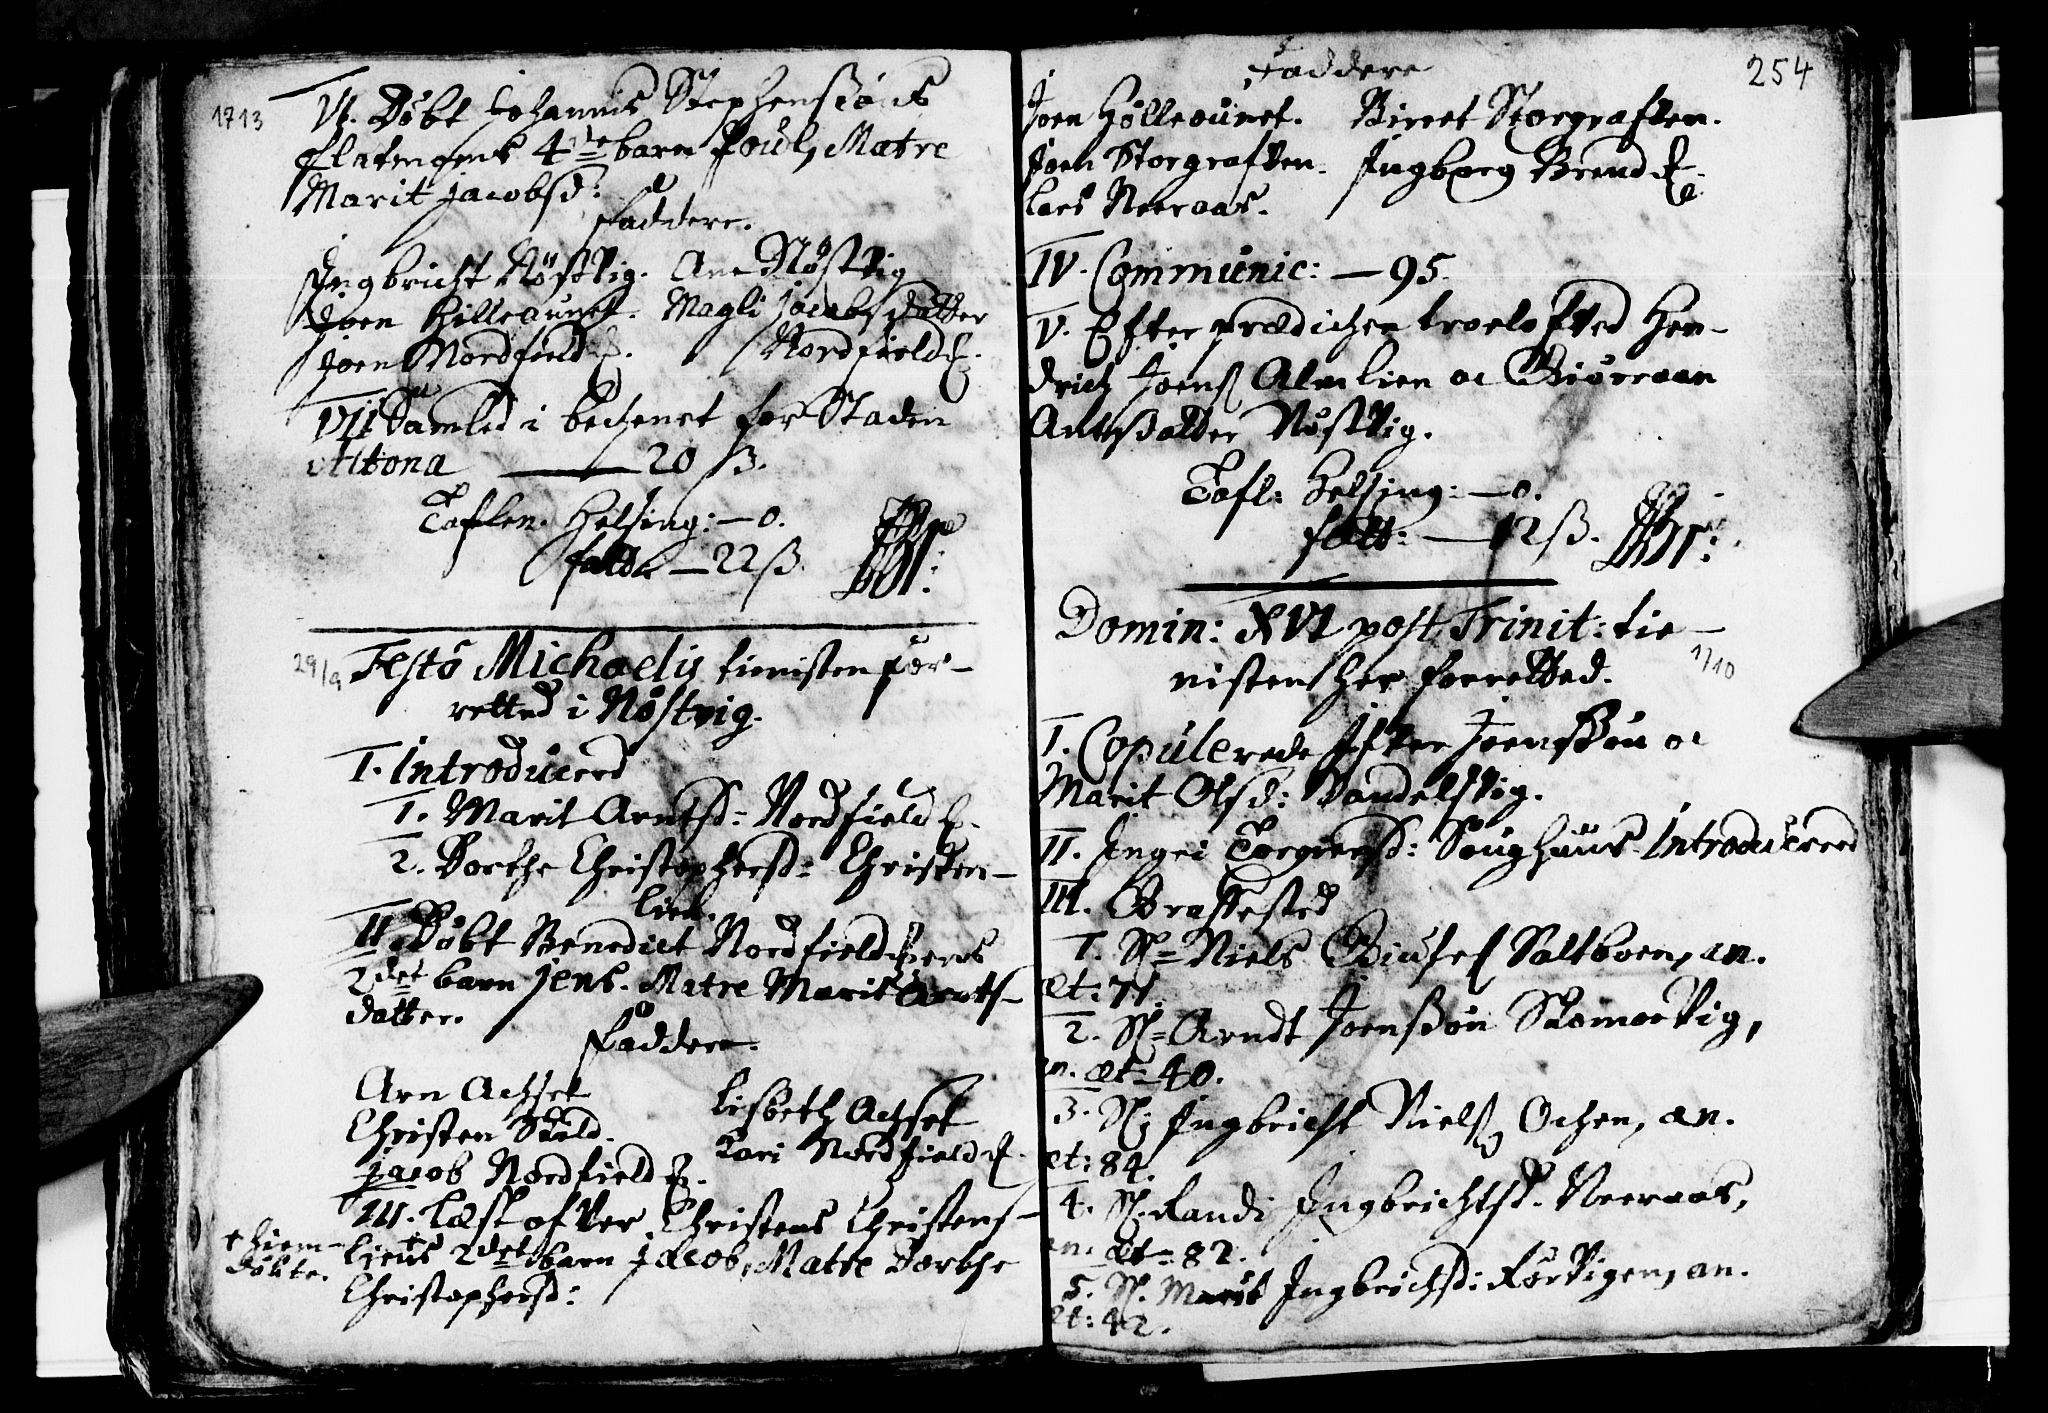 1713
VI. Døbt Johannis Stephensøns
Flatengens 4de barn Poul, Matre
Marit Jacobsd:
Faddere.
Ingbricht Nøstvig. Ane Nøstvig
Joen Hilleaunet. Magli Jacobsdatter
Joen Nordfield. Nordfield.
VII Samled i bechenet for Staden
Altona — 20 ß.
Taflen. Helsing: — 0.
faldt — 22 ß.
29/9
Festo Michaelis tienisten for-
retted i Nøstvig.
I. Introducerd
1. Marit Arntsd: Nordfield
2. Dorthe Christophersd: Christen-
lien.
II. Døbt Benedict Nordfield
2det barn Jens. Matre Marit Arnts-
datter.
Faddere.
Arn Achset
Lisbeth Achset
Christen Skeld.
Kari Nordfield
Jacob Nordfield
III. Læst ofver Christens Christens-
liens 2det barn Jacob, Matre Dorthe
+ hiem-
døbte.
Christophersd:
254
Faddere
Joen Hølleaunet. Birret Storgraften.
Joen Storgraften. Ingborg Brend
Lars Neeraas.
IV. Communic: — 95.
V. Efter prædichen troelofved Hen-
drich Joens Almlien oc Giørraan
Antsdatter Nøstvig.
Tafl: Helsing: — 0.
faldt: — 12 ß.
Domin: XVI post Trinit: tie-
1/10
nisten her forretted.
I. Copulerede Ifver Joensøn oc
Marit Olsd: Vandelsvig.
II. Ingri Torgersd: Soughuus Introducered
III. Graffested
1. Sl= Niels Saltboen, an.
æt: 71.
2. Sl= Arndt Joensøn Skomoevig,
an. æt= 40.
3. Sl: Ingbricht Niels Ochen, an.
æt: 84.
4. Sl. Randi Ingbrichtsd. Neeraas,
an. æt= 82.
5. Sl. Marit Ingbrichtsd: Rørvigen, an.
æt: 42.